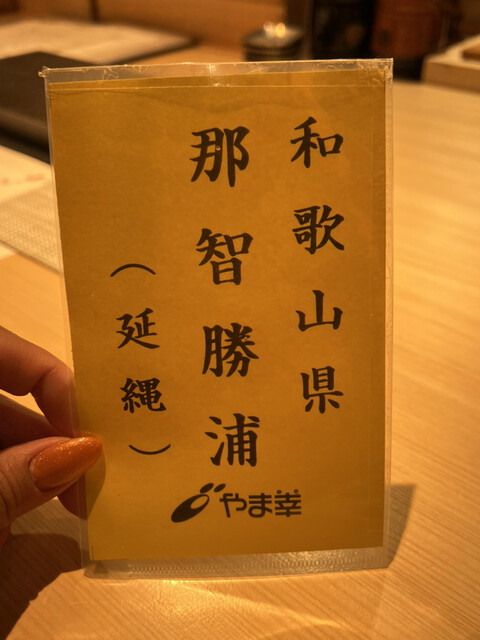 和歌山県
那智勝浦
（延縄）
やま幸